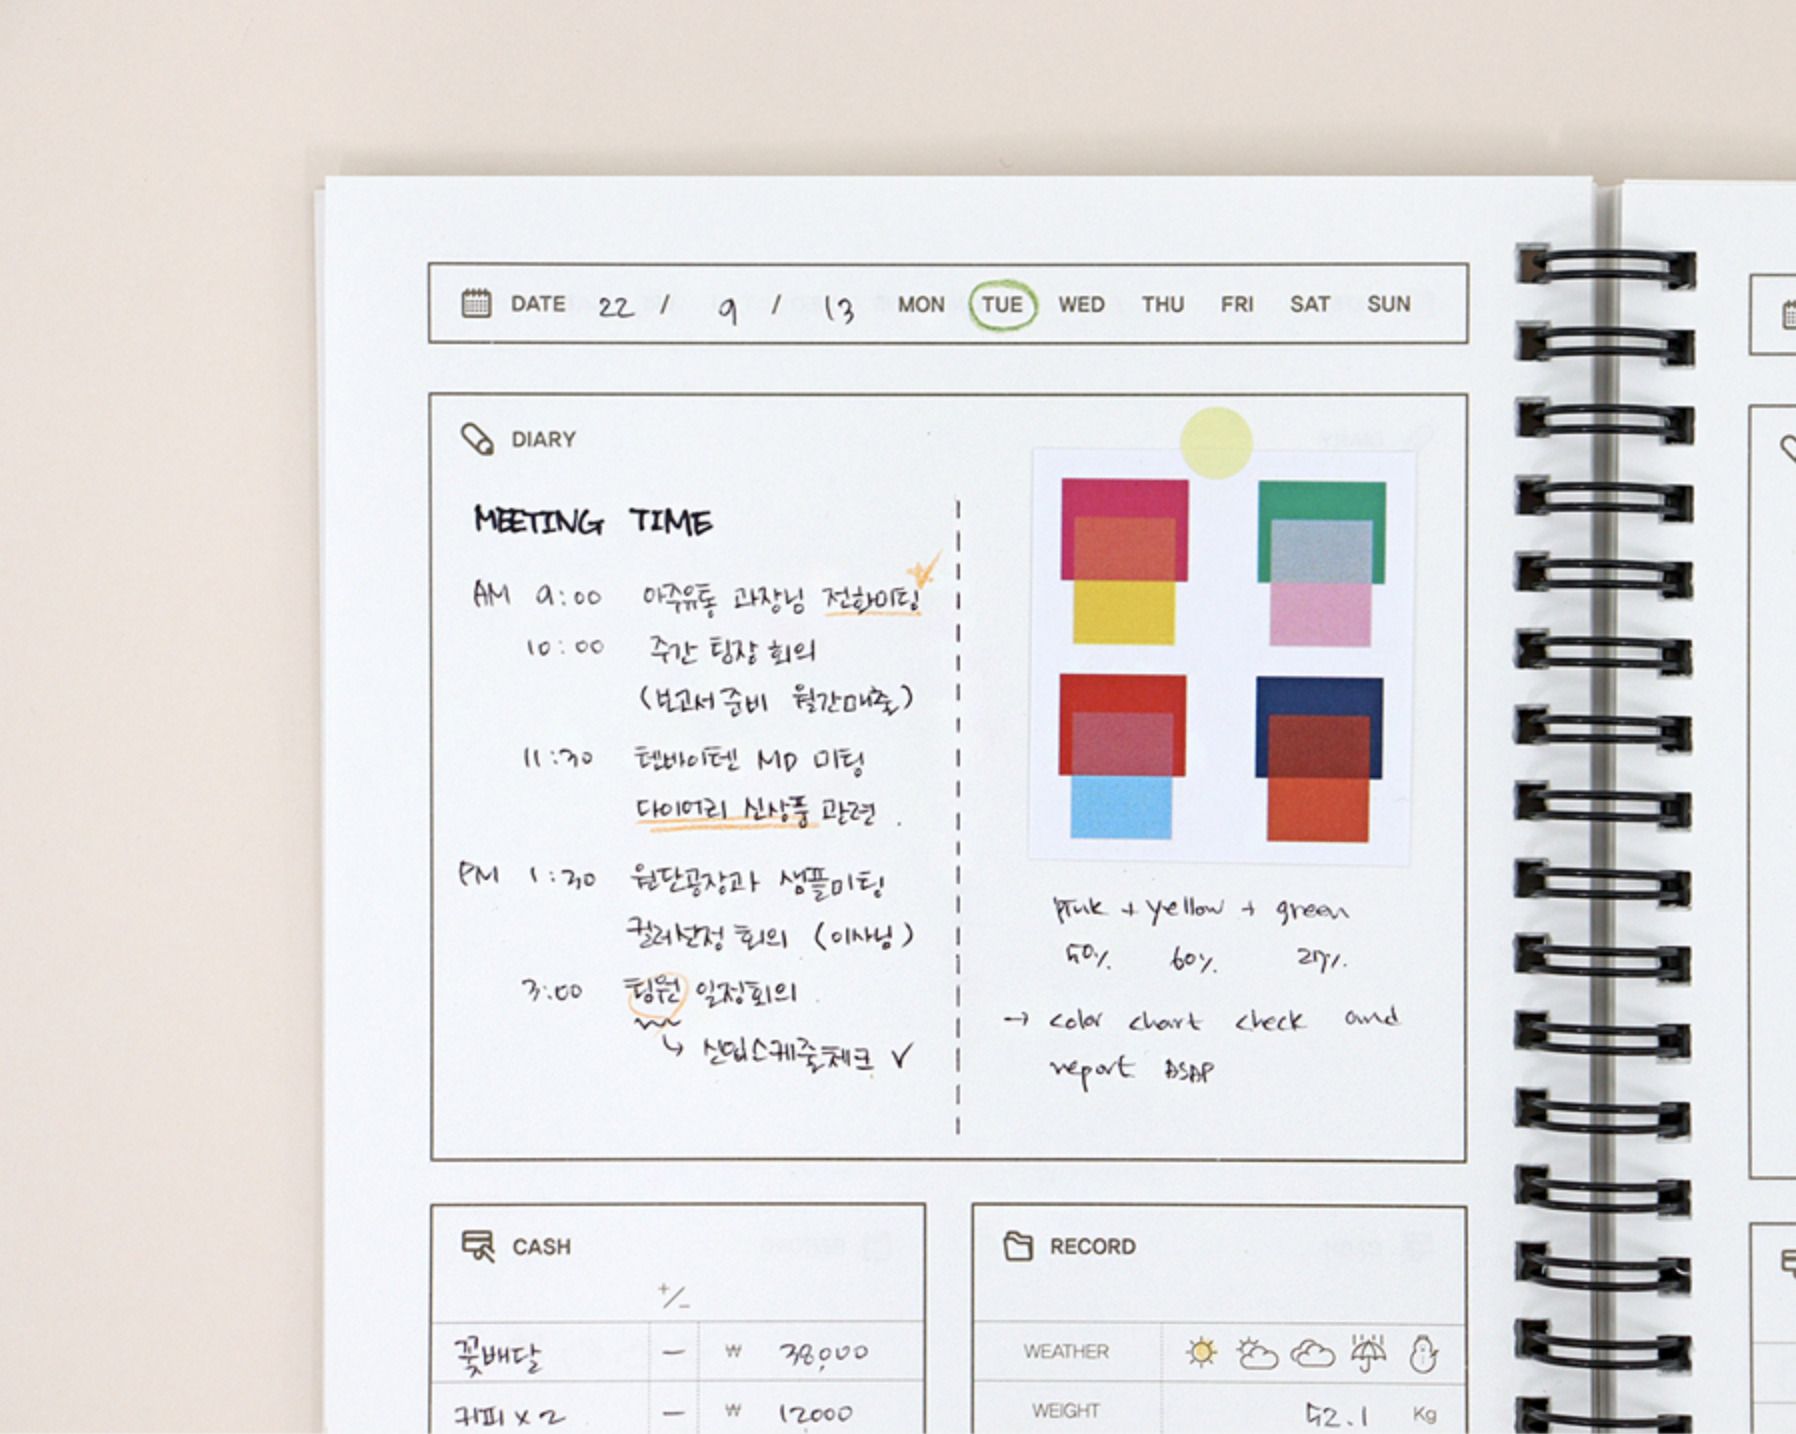 DATE 22 / 9 / 13 MON TUE WED THU FRI SAT SUN
DIARY
MEETING TIME
AM 9:00 아주유통 과장님 전화미팅
10:00 주간 팀장 회의
(보고서 준비 월간매출)
11:30 텐바이텐 MD 미팅
다이어리 신상품 관련.
PM 1:30 원단공장과 샘플미팅
컬러선정 회의 (이사님)
3:00 팀원 일정회의
↳ 신입스케줄체크 ✓
pink + yellow + green
50% 60% 27%
→ color chart check and
report ASAP
CASH
+/-
꽃배달 - ₩ 38,000
커피 x 2 - ₩ 12000
RECORD
WEATHER
WEIGHT 52.1 Kg